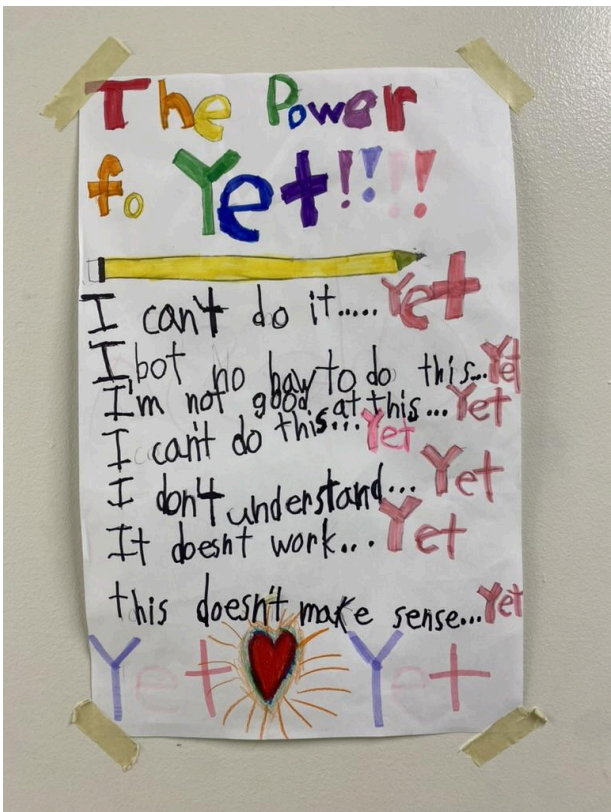 The Power
fo Yet!!!!
I can't do it..... Yet
I bot no haw to do this...Yet
I'm not good at this... Yet
I can't do this... Yet
I don't understand... Yet
It doesnt work... Yet
this doesn't make sense...Yet
Yet Yet